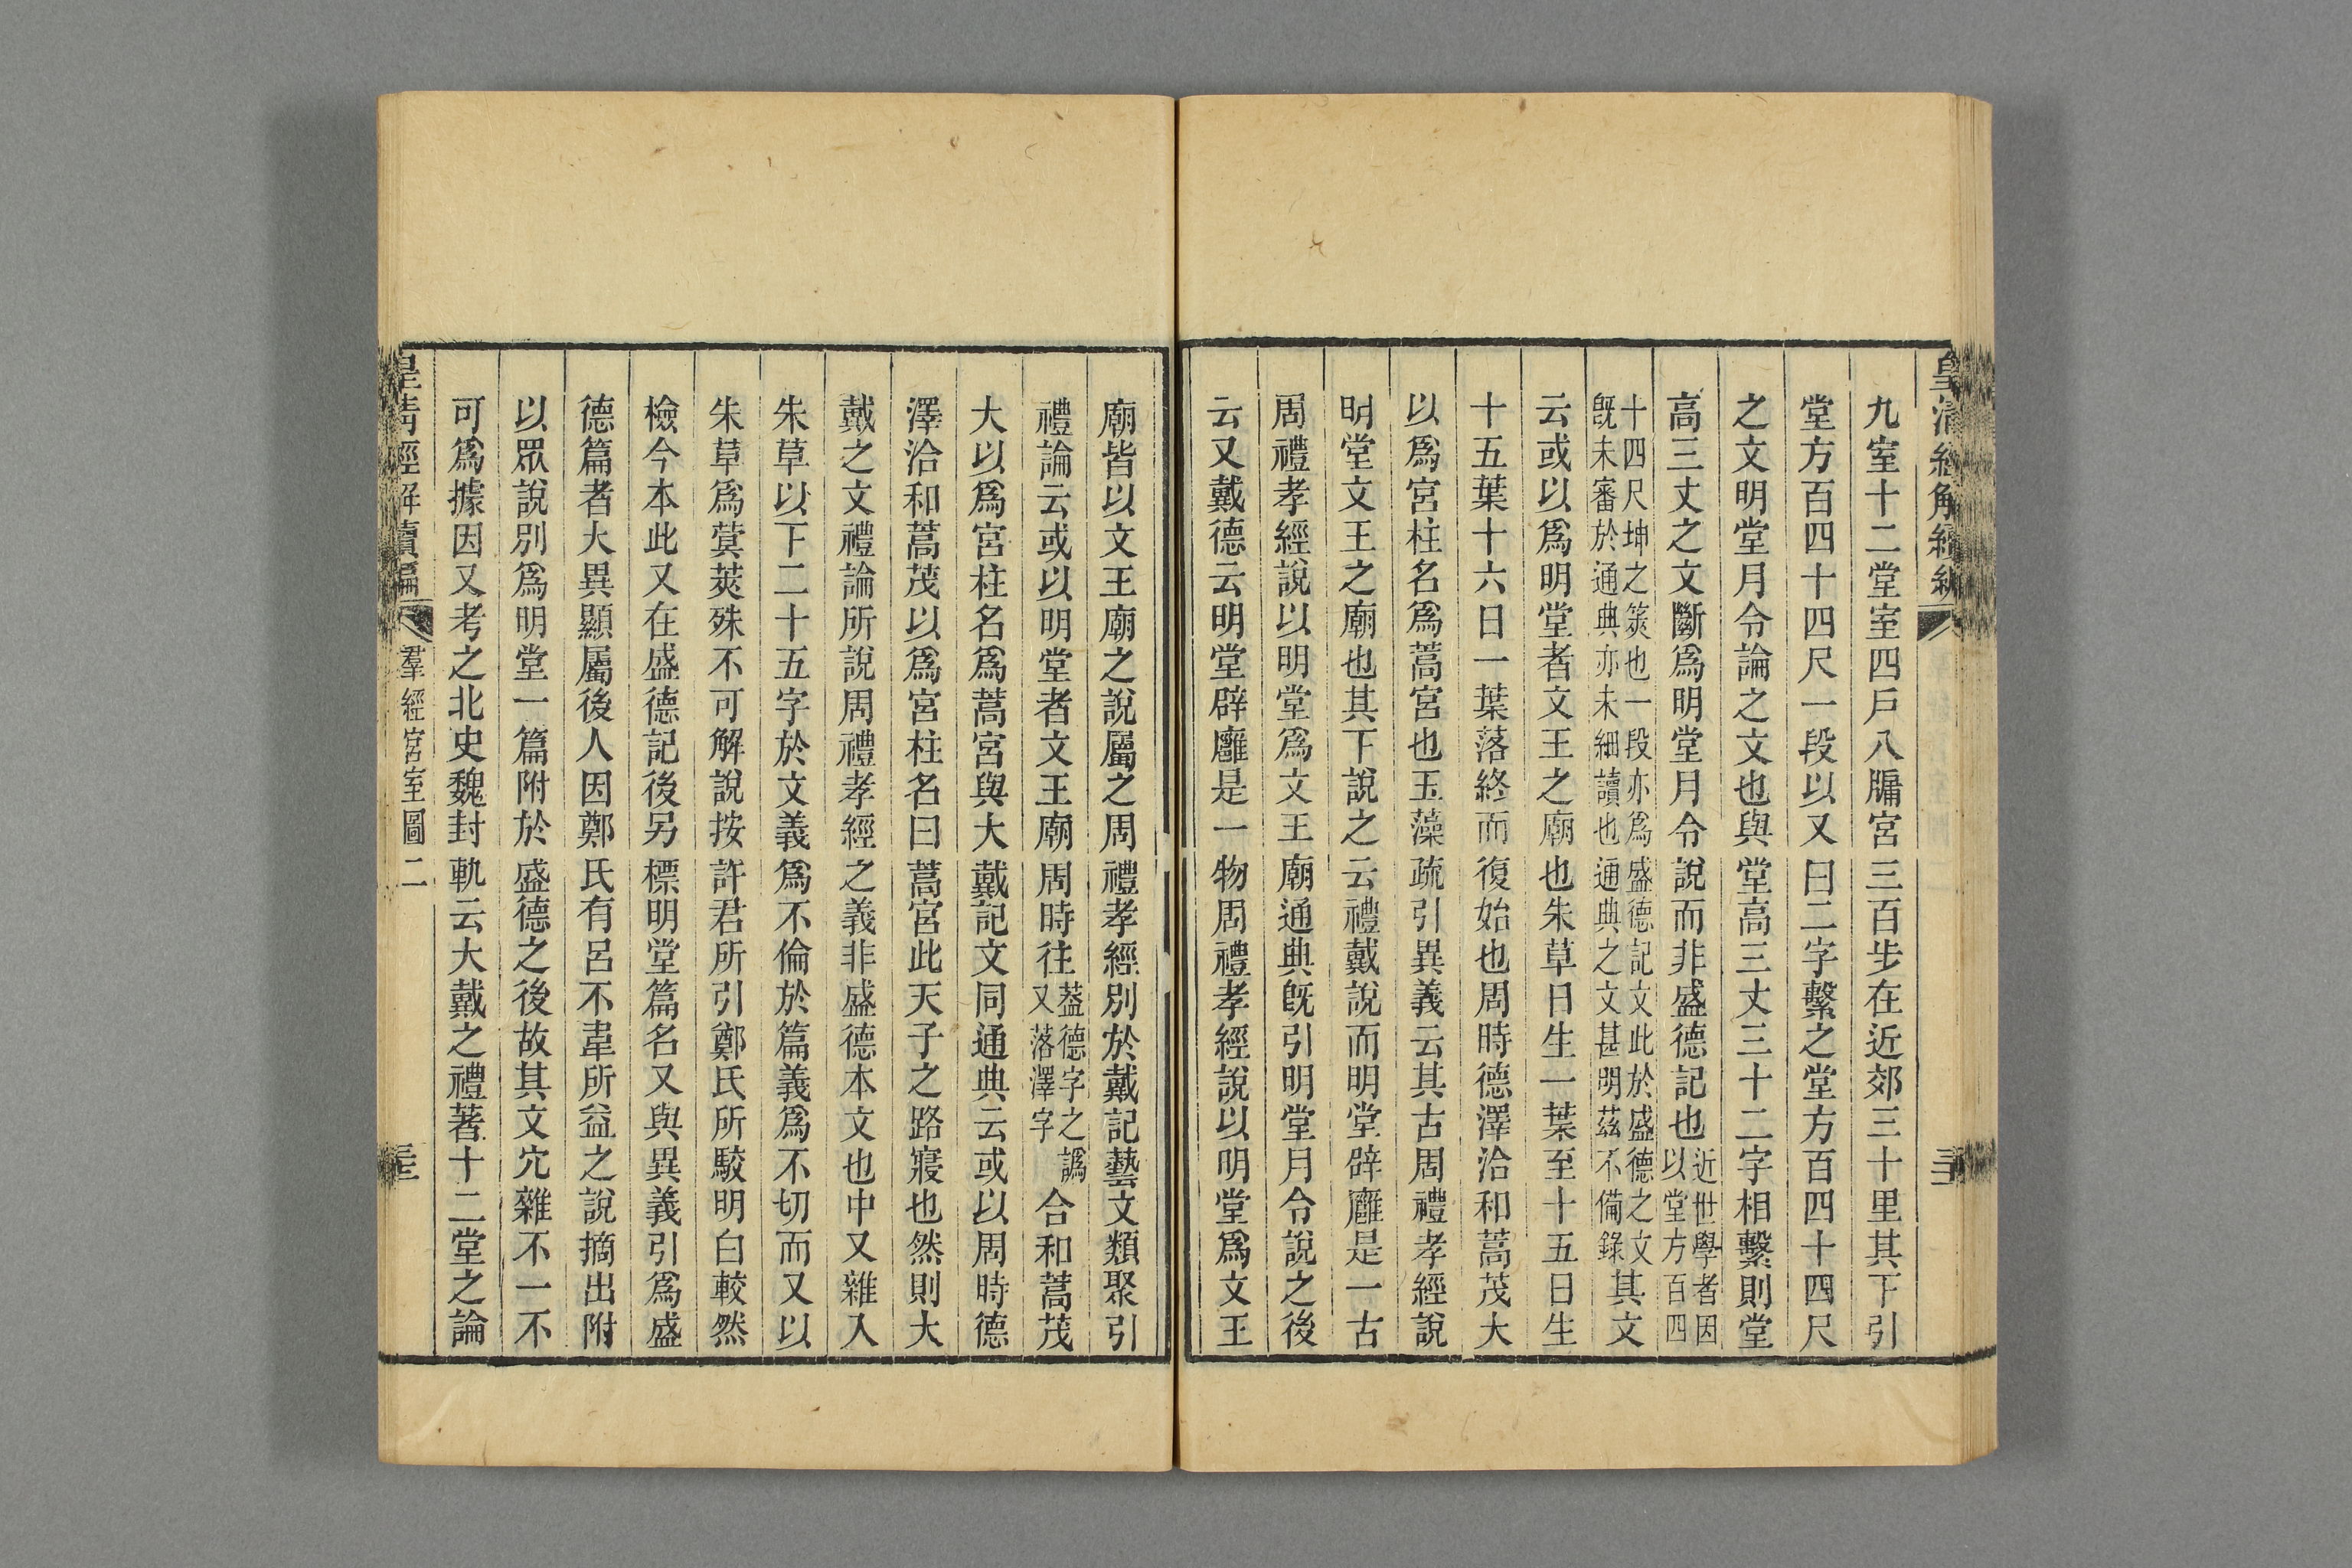 皇清經解續編
九室十二堂室四戶八牖宮三百步在近郊三十里其下引
堂方百四十四尺一段以又曰二字繫之堂方百四十四尺
之文明堂月令論之文也與堂高三丈三十二字相繫則堂
高三丈之文斷爲明堂月令說而非盛德記也近世學者因以堂方百四
十四尺坤之筴也一段亦爲盛德記文此於盛德之文旣未審於通典亦未細讀也通典之文甚明茲不備錄其文
云或以爲明堂者文王之廟也朱草日生一葉至十五日生
十五葉十六日一葉落終而復始也周時德澤洽和蒿茂大
以爲宮柱名爲蒿宮也玉藻疏引異義云其古周禮孝經說
明堂文王之廟也其下說之云禮戴說而明堂辟廱是一古
周禮孝經說以明堂爲文王廟通典旣引明堂月令說之後
云又戴德云明堂辟廱是一物周禮孝經說以明堂爲文王
廟皆以文王廟之說屬之周禮孝經別於戴記藝文類聚引
禮論云或以明堂者文王廟周時往葢德字之譌又落澤字合和蒿茂
大以爲宮柱名爲蒿宮與大戴記文同通典云或以周時德
澤洽和蒿茂以爲宮柱名曰蒿宮此天子之路寢也然則大
戴之文禮論所說周禮孝經之義非盛德本文也中又雜入
朱草以下二十五字於文義爲不倫於篇義爲不切而又以
朱草爲蓂莢殊不可解說按許君所引鄭氏所駮明白較然
檢今本此又在盛德記後另標明堂篇名又與異義引爲盛
德篇者大異顯屬後人因鄭氏有呂不韋所益之說摘出附
以眾說別爲明堂一篇附於盛德之後故其文宂雜不一不
可爲據因又考之北史魏封軌云大戴之禮著十二堂之論
皇清經解續編
羣經宮室圖二